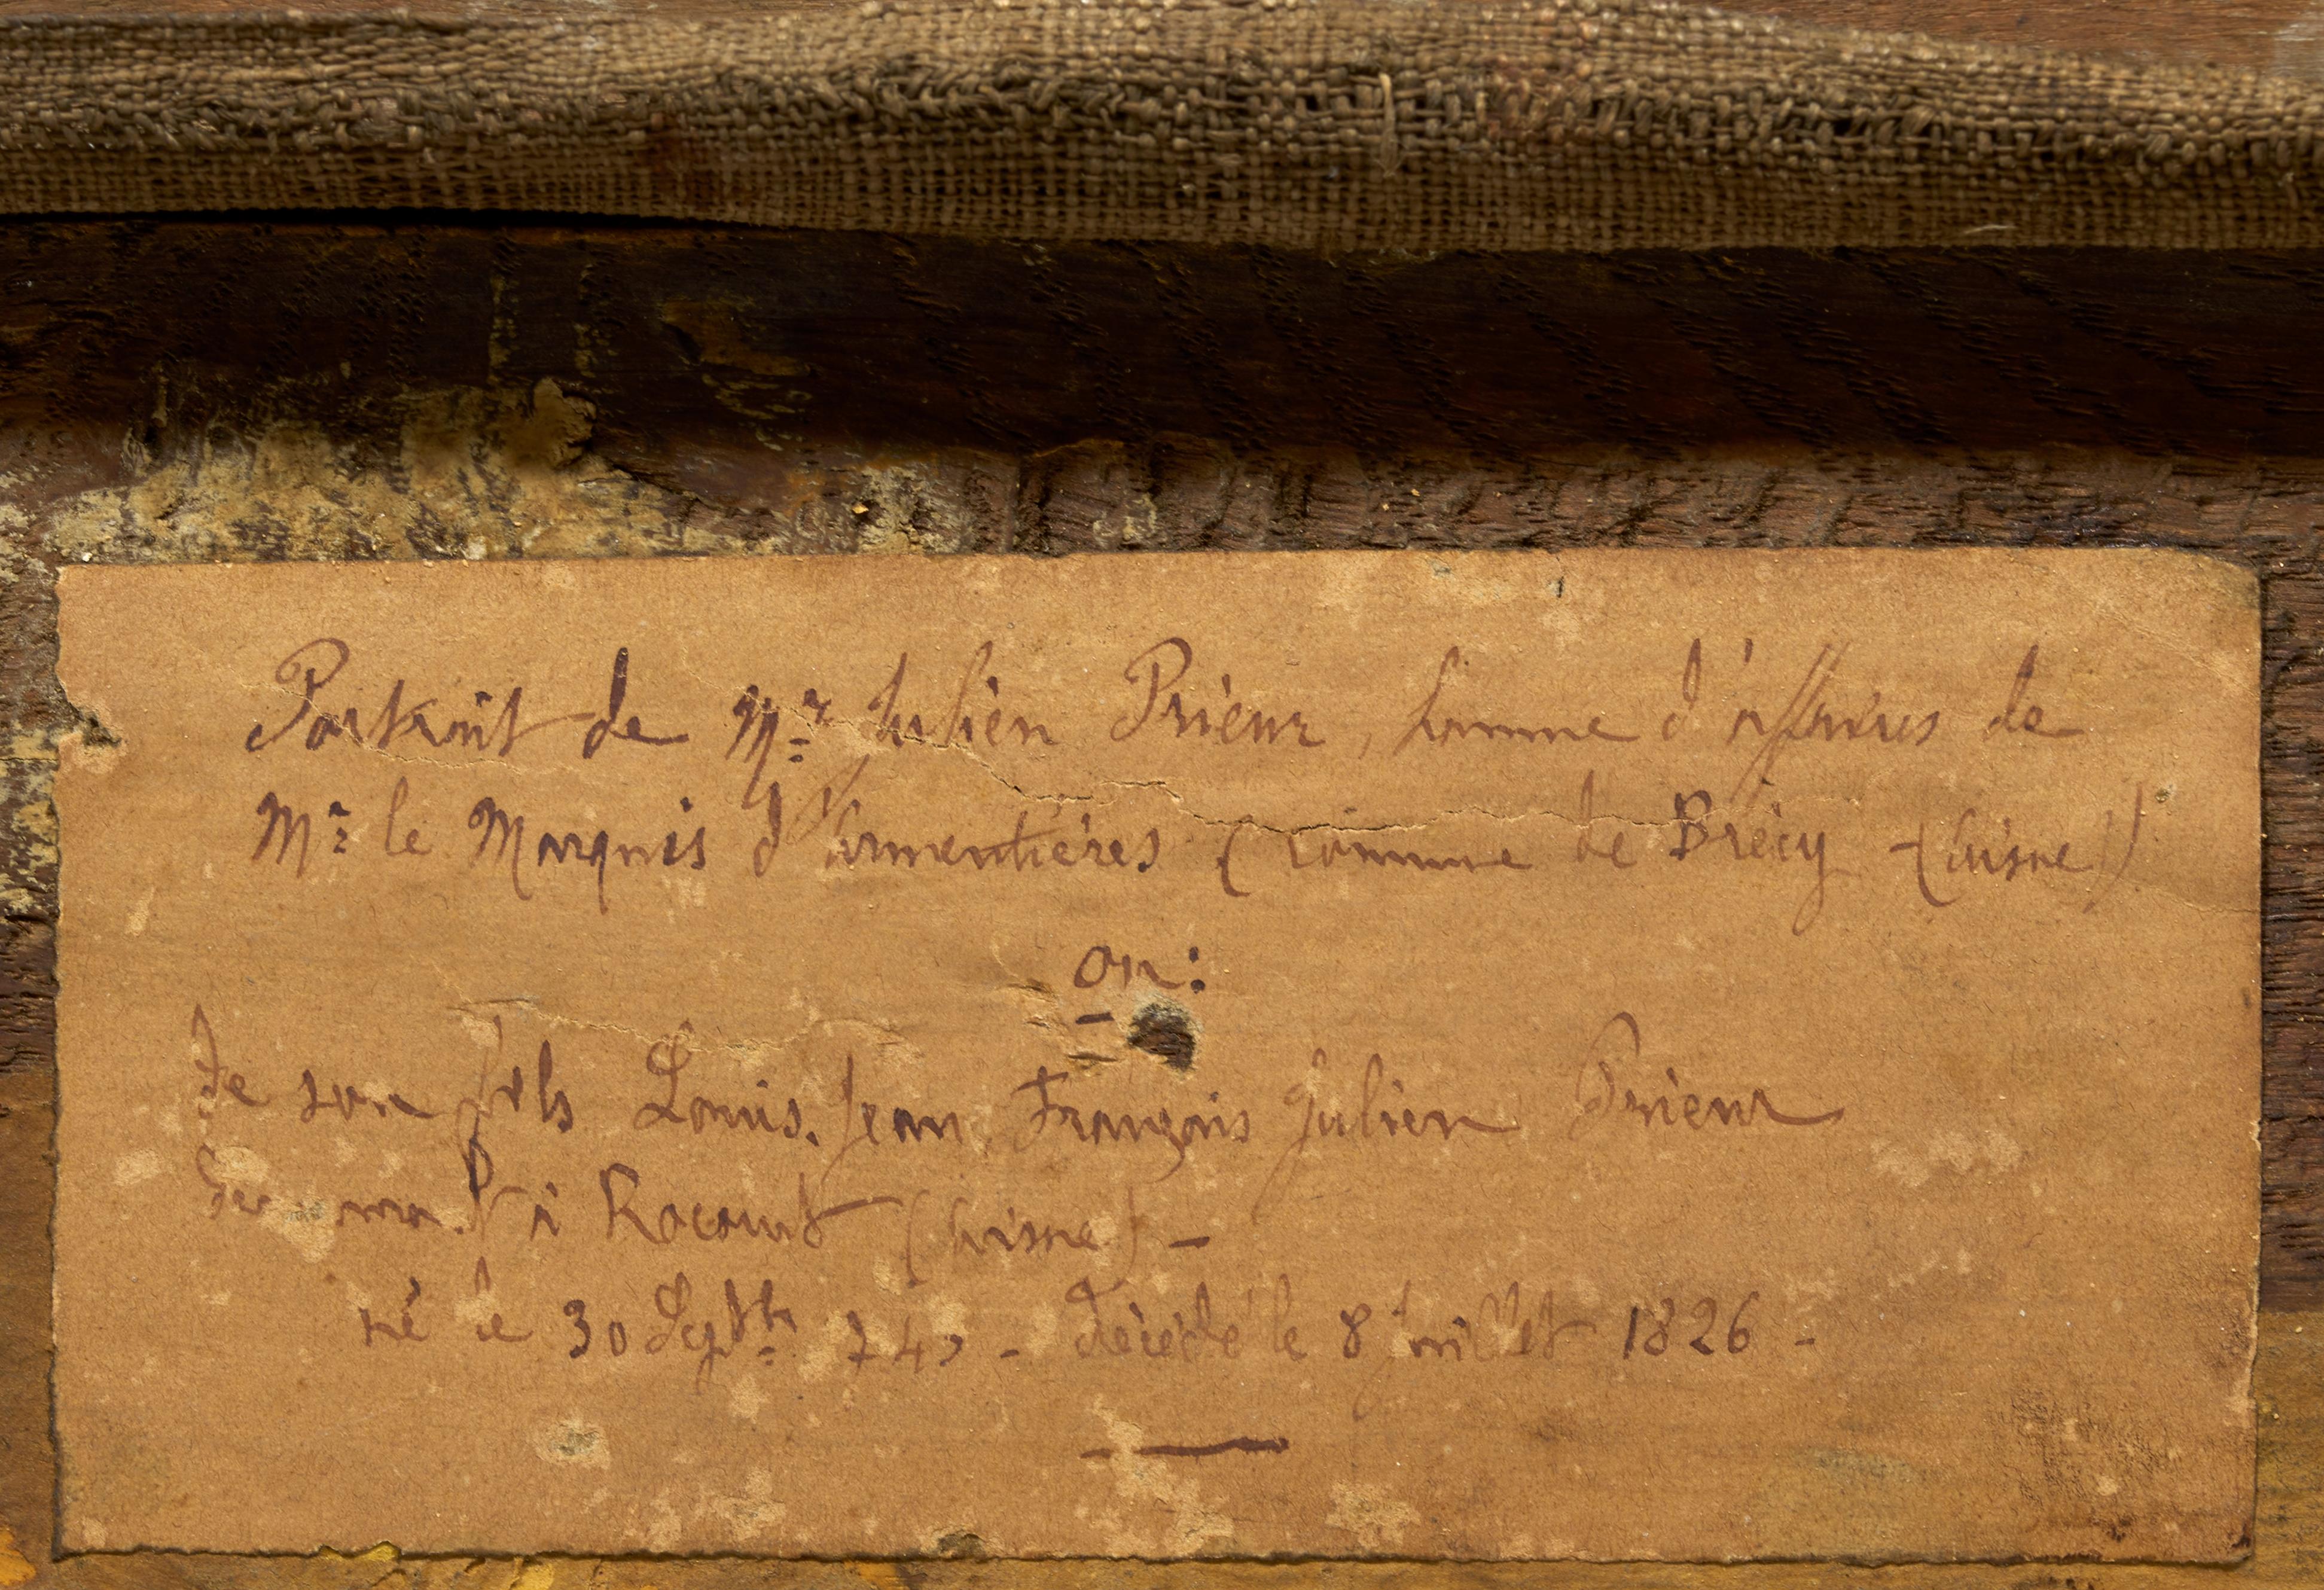 Portrait de Mr Julien Prieur, homme d'affaires de
Mr le Marquis d'Armentières (commune de Brécy - (Aisne))
ou:
de son fils Louis. Jean François Julien Prieur
à Rocourt (Aisne) -
né le 30 Septbre 174 - Décédé le 8 Juillet 1826 -